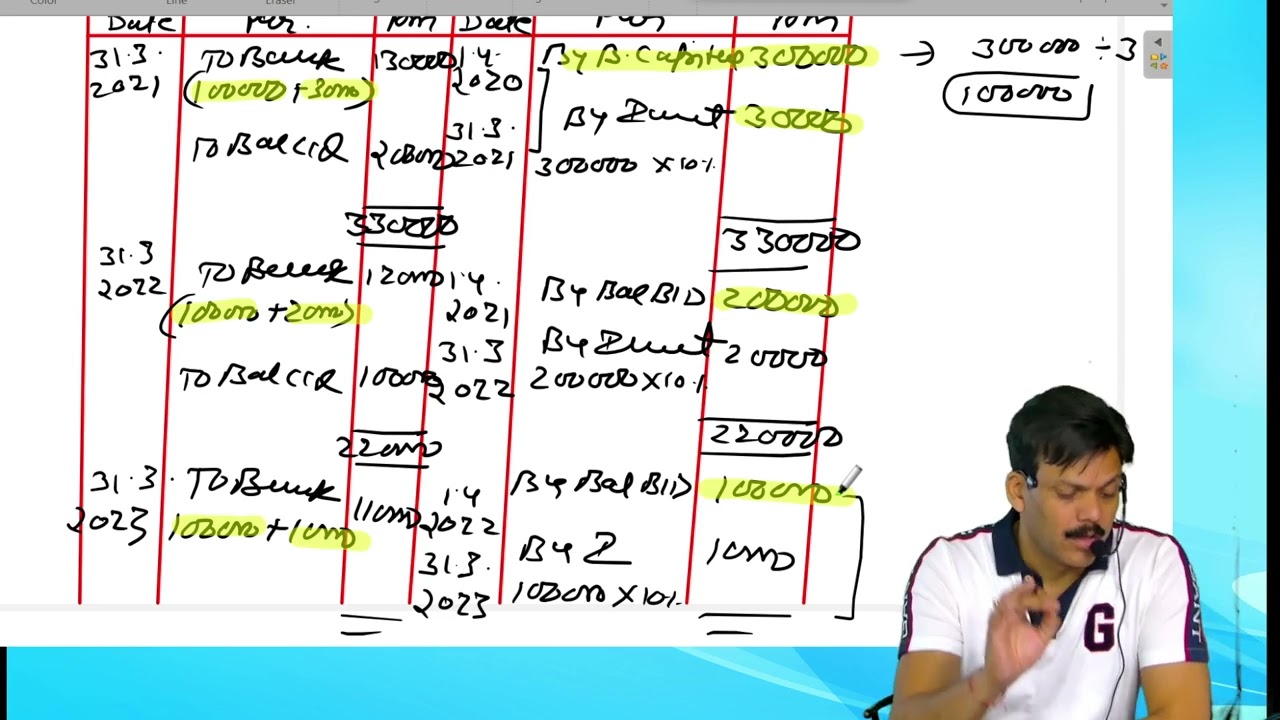 Color Line Eraser
Date Par. Date
31.3. To Bank 130000 1.4. By B. Capital 300000 → 300000 ÷ 3
2021 (100000 + 30000) 2020 100000
By Int 30000
To Bal C/d 200000 31.3. 2021 300000 x 10%
330000 330000
31.3 2022 To Bank 120000 1.4. 2021 By Bal B/D 200000
(100000 + 20000)
31.3 2022 By Int 20000
To Bal C/d 100000 200000 x 10%
220000 220000
31.3. 2023 To Bank 110000 1.4 2022 By Bal B/D 100000
100000 + 10000
31.3. 2023 By I 10000
100000 x 10%
G